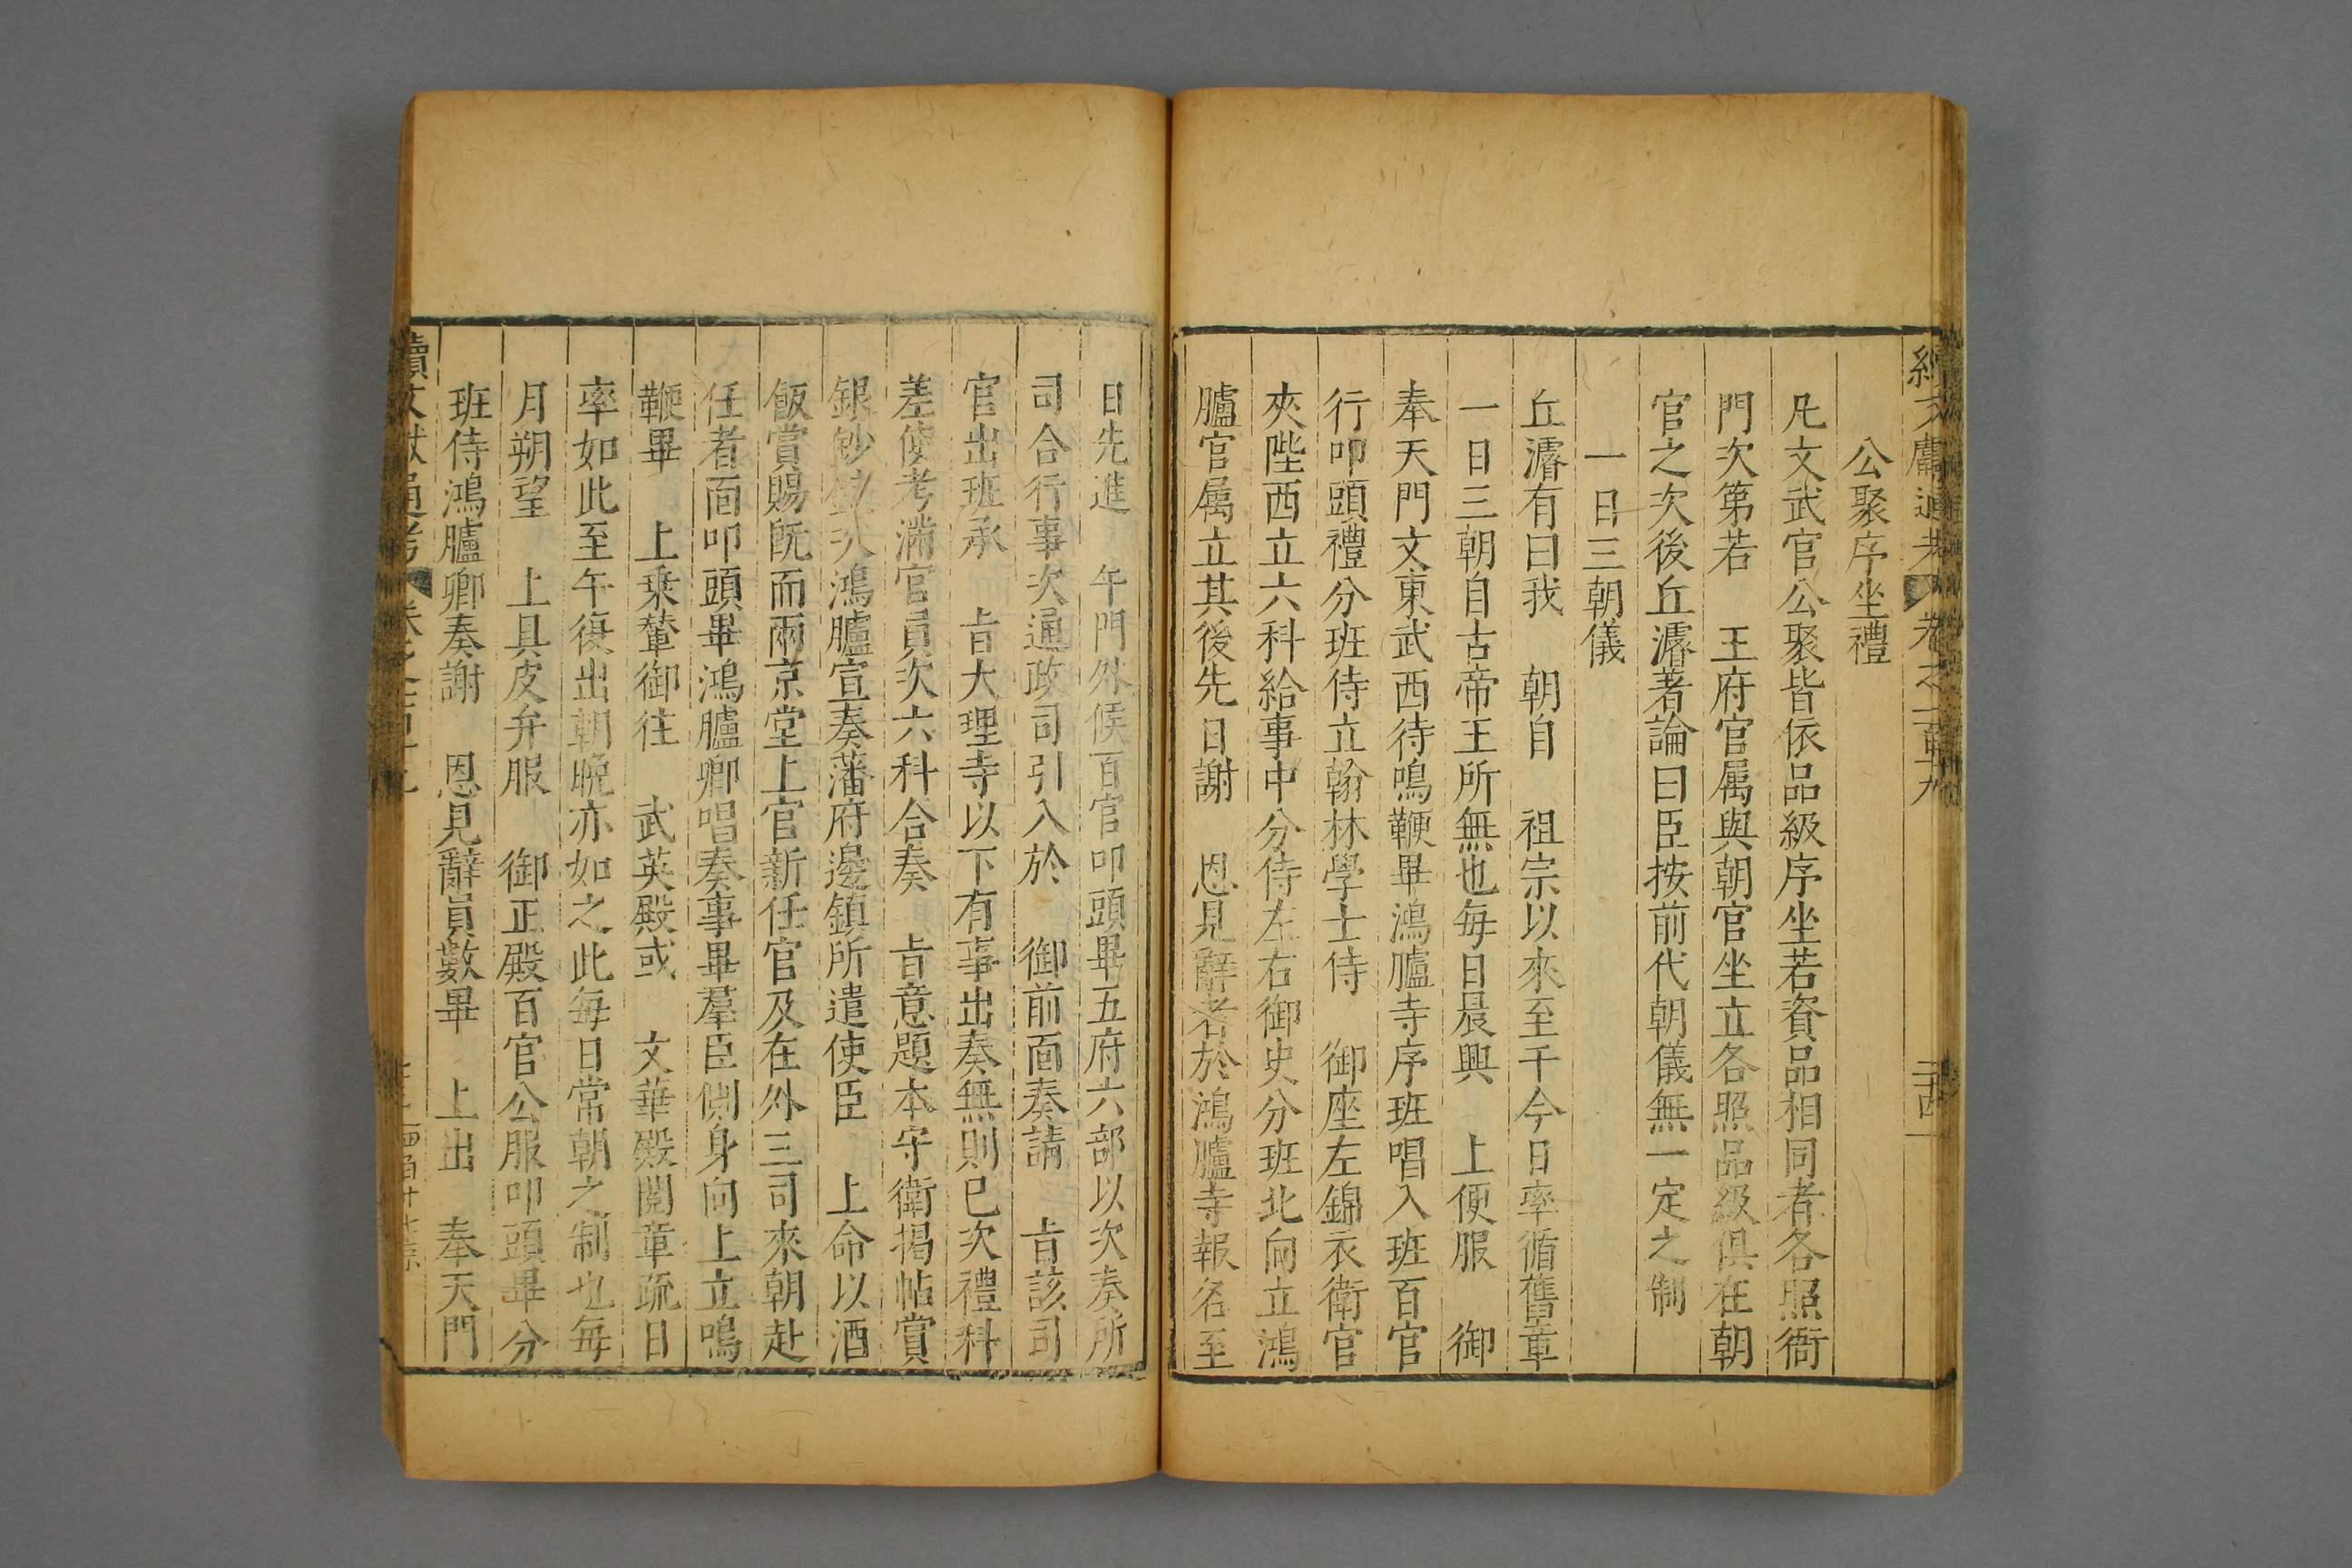 續文獻通考 卷之一百十九 三十四
公聚序坐禮
凡文武官公聚皆依品級序坐若資品相同者各照衙
門次第若 王府官属與朝官坐立各照品級俱在朝
官之次後丘濬著論曰臣按前代朝儀無一定之制
一日三朝儀
丘濬有曰我 朝自 祖宗以來至于今日率循舊章
一日三朝自古帝王所無也每日晨興 上便服 御
奉天門文東武西待鳴鞭畢鴻臚寺序班唱入班百官
行叩頭禮分班侍立翰林學士侍 御座左錦衣衛官
夾陛西立六科給事中分侍左右御史分班北向立鴻
臚官属立其後先日謝 恩見辭者於鴻臚寺報名至
日先進 午門外候百官叩頭畢五府六部以次奏所
司合行事次通政司引入於 御前面奏請 旨該司
官出班承 旨大理寺以下有事出奏無則已次禮科
差使考滿官員次六科合奏 旨意題本守衛揭帖賞
銀鈔錠次鴻臚宣奏藩府邊鎮所遣使臣 上命以酒
飯賞賜既而兩京堂上官新任官及在外三司來朝赴
任者面叩頭畢鴻臚卿唱奏事畢羣臣側身向上立鳴
鞭畢 上乗輦御往 武英殿或 文華殿閱章疏日
率如此至午復出朝晩亦如之此每日常朝之制也每
月朔望 上具皮弁服 御正殿百官公服叩頭畢分
班侍鴻臚卿奏謝 恩見辭員數畢 上出 奉天門
續文獻通考 卷之一百十九